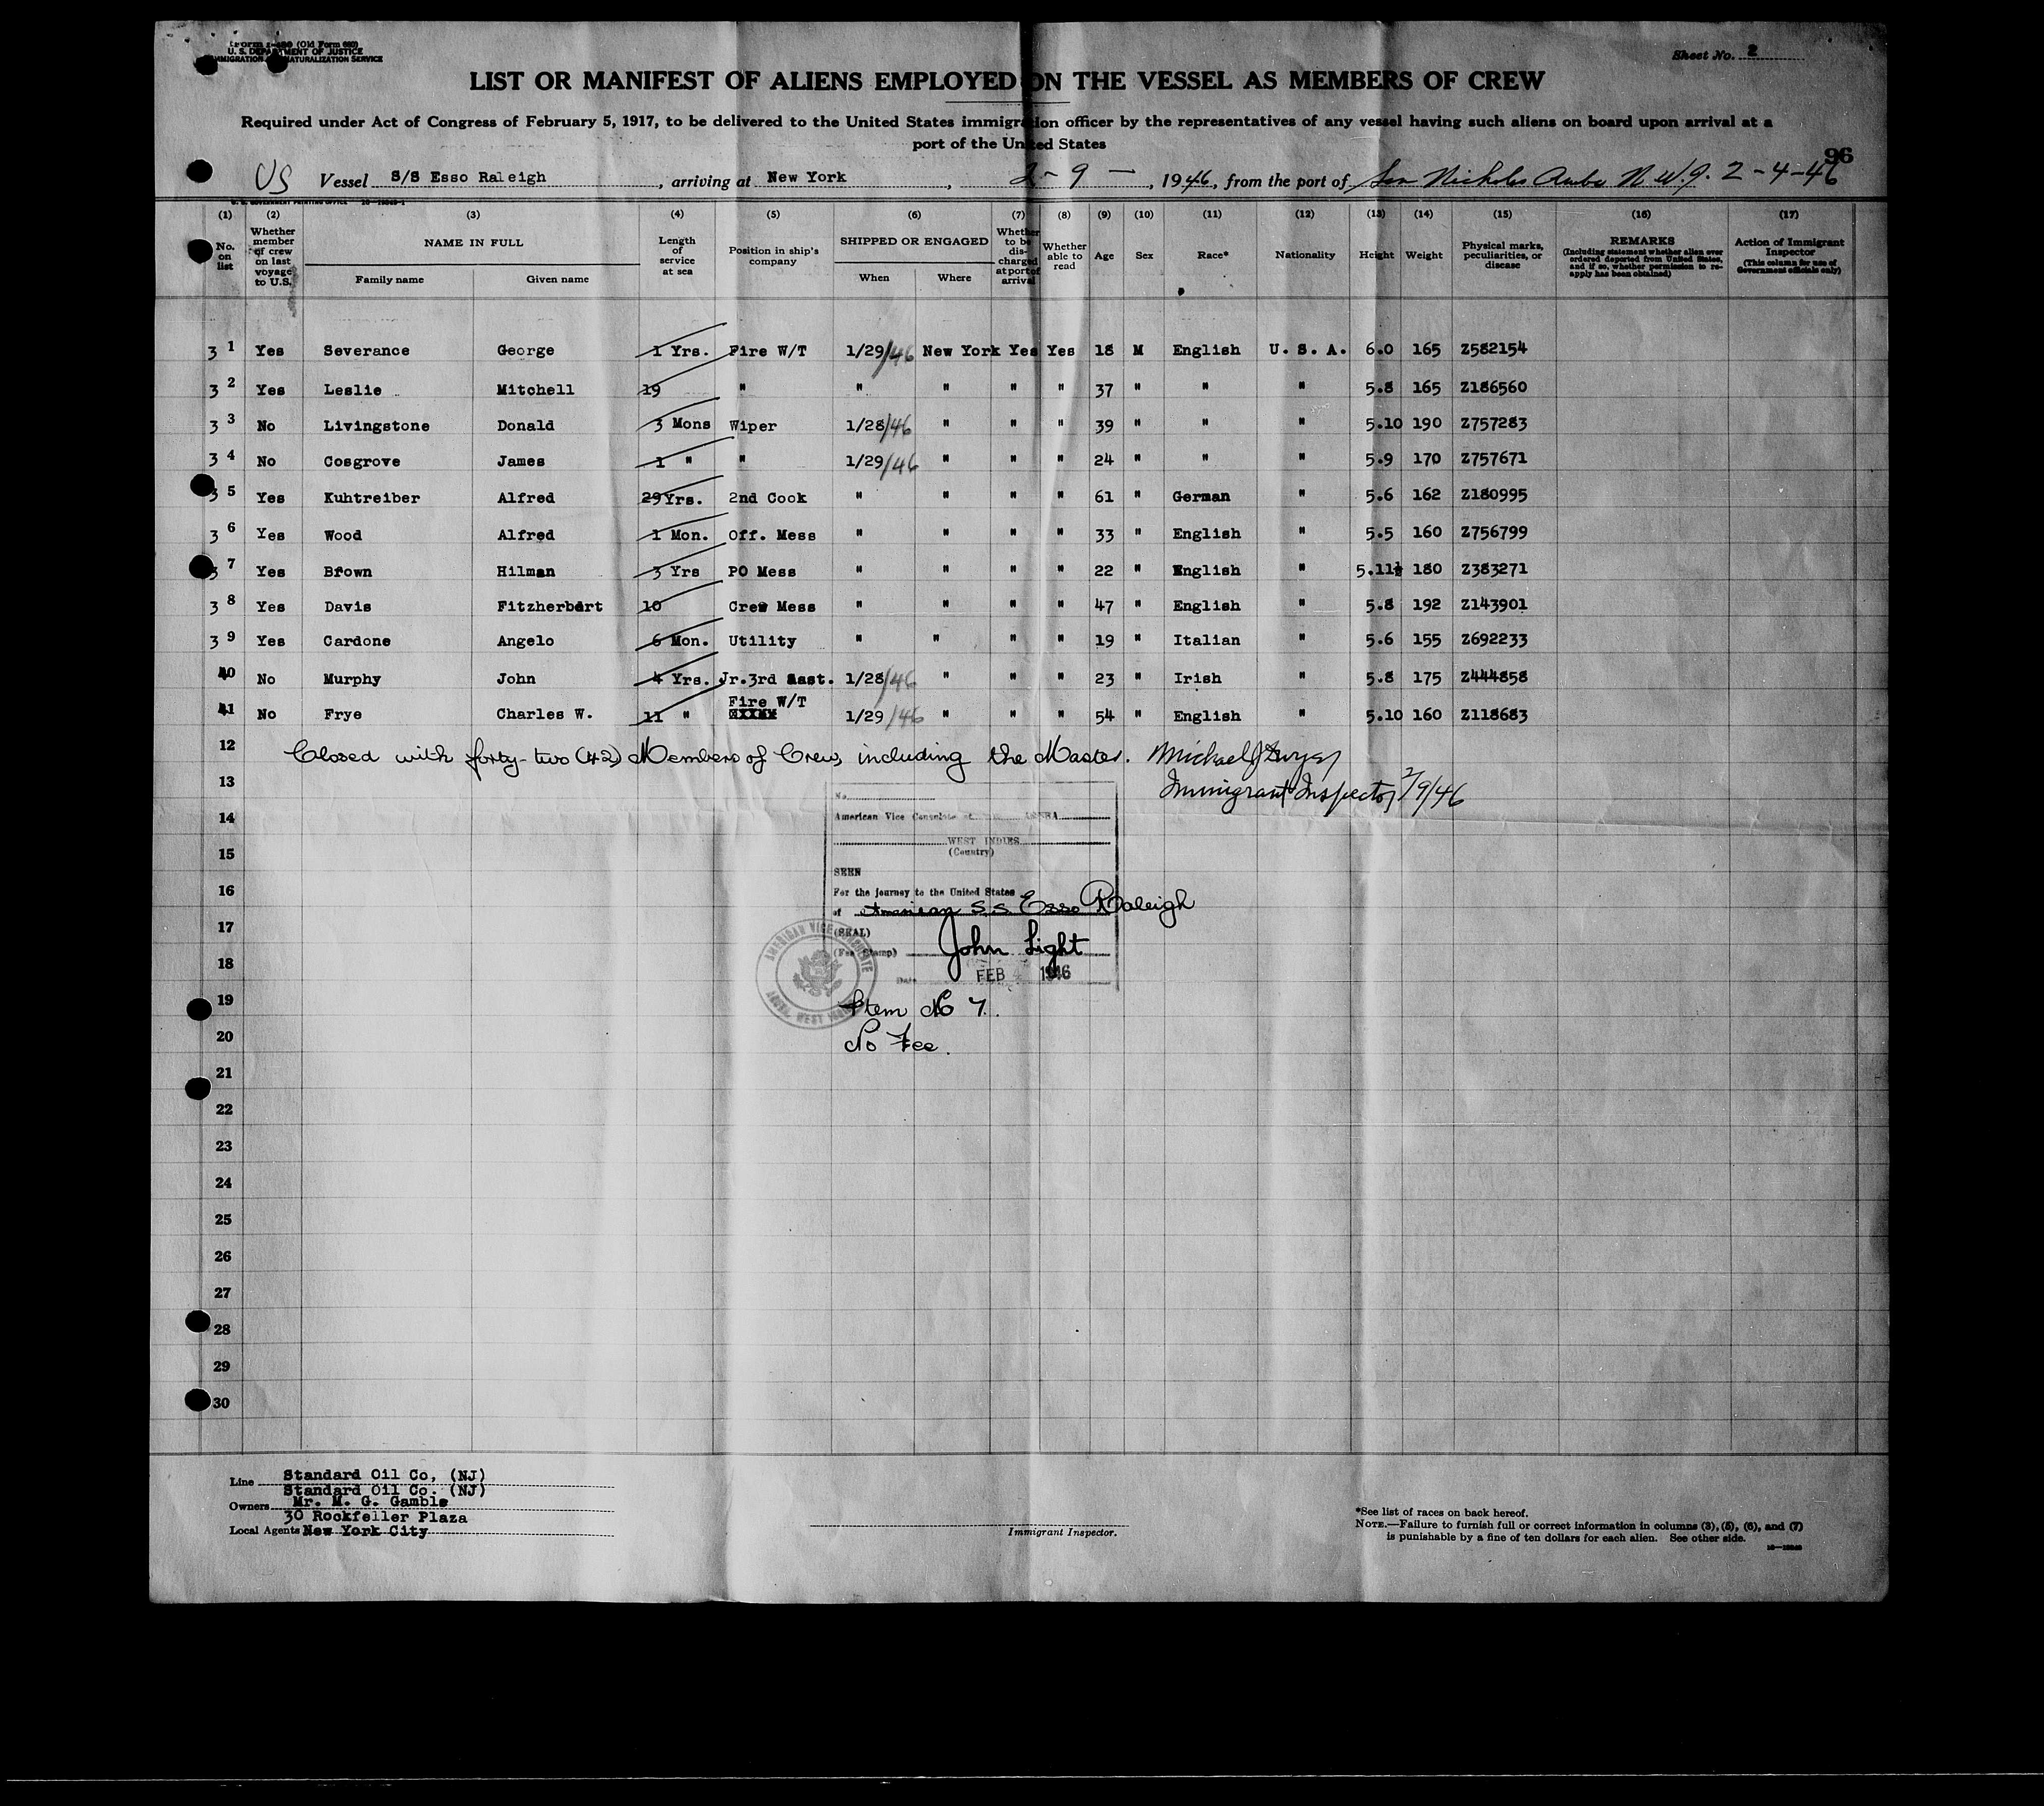 Form I-480 (Old Form 680)
U. S. DEPARTMENT OF JUSTICE
IMMIGRATION AND NATURALIZATION SERVICE
Sheet No. 2
LIST OR MANIFEST OF ALIENS EMPLOYED ON THE VESSEL AS MEMBERS OF CREW
Required under Act of Congress of February 5, 1917, to be delivered to the United States immigration officer by the representatives of any vessel having such aliens on board upon arrival at a
port of the United States
96
US Vessel S/S Esso Raleigh, arriving at New York, 2-9-, 1946, from the port of San Nicholas Aruba N.W.I. 2-4-46
U. S. GOVERNMENT PRINTING OFFICE
(1) (2) (3) (4) (5) (6) (7) (8) (9) (10) (11) (12) (13) (14) (15) (16) (17)
No. on list
Whether member of crew on last voyage to U.S.
NAME IN FULL
Family name Given name
Length of service at sea
Position in ship's company
SHIPPED OR ENGAGED
When Where
Whether to be discharged at port of arrival
Whether able to read
Age Sex Race* Nationality Height Weight
Physical marks, peculiarities, or disease
REMARKS
(Including statement whether alien ever ordered deported from United States, and if so, whether permission to re-apply has been obtained)
Action of Immigrant Inspector
(This column for use of Government officials only)
3 1 Yes Severance George 1 Yrs. Fire W/T 1/29/46 New York Yes Yes 18 M English U. S. A. 6.0 165 Z582154
3 2 Yes Leslie Mitchell 19 " " " " " 37 " " " 5.8 165 Z186560
3 3 No Livingstone Donald 3 Mons Wiper 1/28/46 " " " 39 " " " 5.10 190 Z757283
3 4 No Cosgrove James 1 " " 1/29/46 " " " 24 " " " 5.9 170 Z757671
3 5 Yes Kuhtreiber Alfred 29Yrs. 2nd Cook " " " " 61 " German " 5.6 162 Z180995
3 6 Yes Wood Alfred 1 Mon. Off. Mess " " " " 33 " English " 5.5 160 Z756799
3 7 Yes Brown Hilman 3 Yrs PO Mess " " " " 22 " English " 5.11½ 180 Z383271
3 8 Yes Davis Fitzherbert 10 Crew Mess " " " " 47 " English " 5.8 192 Z143901
3 9 Yes Cardone Angelo 6 Mon. Utility " " " " 19 " Italian " 5.6 155 Z692233
40 No Murphy John 4 Yrs. Jr.3rd Aast. 1/28/46 " " " 23 " Irish " 5.8 175 Z444858
41 No Frye Charles W. 11 " Fire W/T 1/29/46 " " " 54 " English " 5.10 160 Z118683
12 Closed with forty-two (42) Members of Crew, including the Master. Michael J.
13 Immigrant Inspector 2/9/46
No.
14 American Vice Consulate at ARUBA
WEST INDIES
15 (Country)
SEEN
16 For the journey to the United States
of American S.S. Esso Raleigh
17 (SEAL)
(Fee Stamp) John Light
18 Date FEB 4 1946
AMERICAN VICE CONSULATE
ARUBA, WEST INDIES
19 Item No 7.
20 No Fee.
21
22
23
24
25
26
27
28
29
30
Line Standard Oil Co, (NJ)
Standard Oil Co. (NJ)
Owners Mr. M. G. Gamble
30 Rockfeller Plaza
Local Agents New York City
Immigrant Inspector.
*See list of races on back hereof.
NOTE.—Failure to furnish full or correct information in columns (3), (5), (6), and (7)
is punishable by a fine of ten dollars for each alien. See other side.